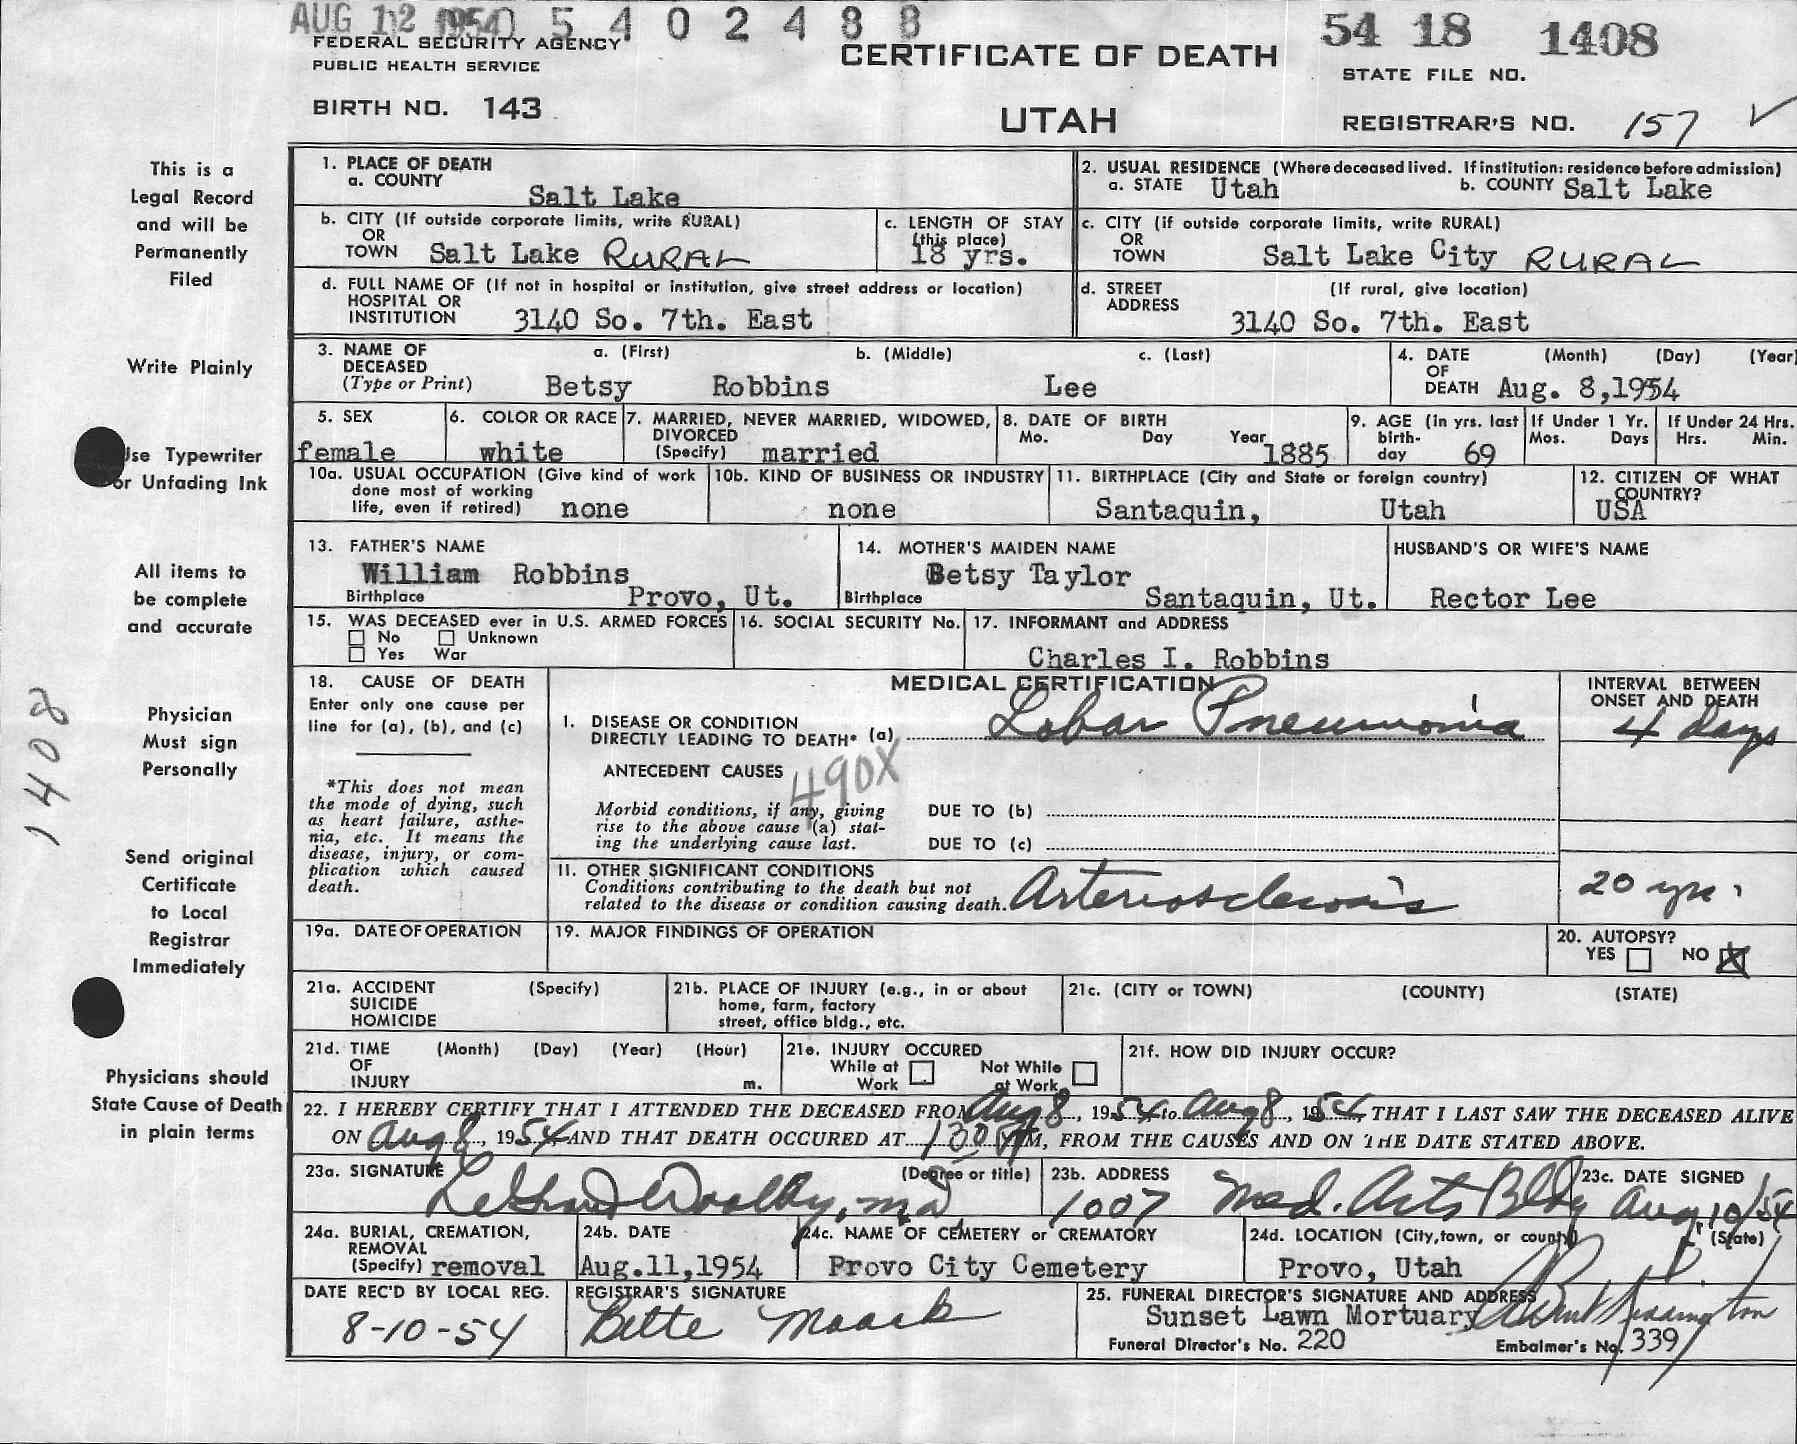 AUG 12 1954 0 5 4 0 2 4 8 8
54 18 1408
FEDERAL SECURITY AGENCY
PUBLIC HEALTH SERVICE
CERTIFICATE OF DEATH
STATE FILE NO.
BIRTH NO. 143
UTAH
REGISTRAR'S NO. 157
This is a
Legal Record
and will be
Permanently
Filed
Write Plainly
Use Typewriter
or Unfading Ink
All items to
be complete
and accurate
Physician
Must sign
Personally
1408
Send original
Certificate
to Local
Registrar
Immediately
Physicians should
State Cause of Death
in plain terms
1. PLACE OF DEATH
a. COUNTY
Salt Lake
2. USUAL RESIDENCE (Where deceased lived. If institution: residence before admission)
a. STATE Utah b. COUNTY Salt Lake
b. CITY (If outside corporate limits, write RURAL)
OR
TOWN Salt Lake RURAL
c. LENGTH OF STAY
(this place)
18 yrs.
c. CITY (if outside corporate limits, write RURAL)
OR
TOWN Salt Lake City RURAL
d. FULL NAME OF (If not in hospital or institution, give street address or location)
HOSPITAL OR
INSTITUTION 3140 So. 7th. East
d. STREET (If rural, give location)
ADDRESS
3140 So. 7th. East
3. NAME OF a. (First) b. (Middle) c. (Last)
DECEASED
(Type or Print) Betsy Robbins Lee
4. DATE (Month) (Day) (Year)
OF
DEATH Aug. 8,1954
5. SEX
female
6. COLOR OR RACE
white
7. MARRIED, NEVER MARRIED, WIDOWED,
DIVORCED
(Specify) married
8. DATE OF BIRTH
Mo. Day Year
1885
9. AGE (in yrs. last
birth-
day 69
If Under 1 Yr.
Mos. Days
If Under 24 Hrs.
Hrs. Min.
10a. USUAL OCCUPATION (Give kind of work
done most of working
life, even if retired) none
10b. KIND OF BUSINESS OR INDUSTRY
none
11. BIRTHPLACE (City and State or foreign country)
Santaquin, Utah
12. CITIZEN OF WHAT
COUNTRY?
USA
13. FATHER'S NAME
William Robbins
Birthplace Provo, Ut.
14. MOTHER'S MAIDEN NAME
Betsy Taylor
Birthplace Santaquin, Ut.
HUSBAND'S OR WIFE'S NAME
Rector Lee
15. WAS DECEASED ever in U.S. ARMED FORCES
No Unknown
Yes War
16. SOCIAL SECURITY No.
17. INFORMANT and ADDRESS
Charles I. Robbins
18. CAUSE OF DEATH
Enter only one cause per
line for (a), (b), and (c)
*This does not mean
the mode of dying, such
as heart failure, asthe-
nia, etc. It means the
disease, injury, or com-
plication which caused
death.
MEDICAL CERTIFICATION
INTERVAL BETWEEN
ONSET AND DEATH
I. DISEASE OR CONDITION
DIRECTLY LEADING TO DEATH* (a) Lobar Pneumonia
4 days
ANTECEDENT CAUSES
490X
Morbid conditions, if any, giving
rise to the above cause (a) stat-
ing the underlying cause last.
DUE TO (b)
DUE TO (c)
11. OTHER SIGNIFICANT CONDITIONS
Conditions contributing to the death but not
related to the disease or condition causing death. Arteriosclerosis
20 yrs.
19a. DATE OF OPERATION
19. MAJOR FINDINGS OF OPERATION
20. AUTOPSY?
YES NO X
21a. ACCIDENT (Specify)
SUICIDE
HOMICIDE
21b. PLACE OF INJURY (e.g., in or about
home, farm, factory
street, office bldg., etc.
21c. (CITY or TOWN) (COUNTY) (STATE)
21d. TIME (Month) (Day) (Year) (Hour)
OF
INJURY m.
21e. INJURY OCCURED
While at Work
Not While at Work
21f. HOW DID INJURY OCCUR?
22. I HEREBY CERTIFY THAT I ATTENDED THE DECEASED FROM Aug 8, 1954, to Aug 8, 1954, THAT I LAST SAW THE DECEASED ALIVE
ON Aug 8, 1954 AND THAT DEATH OCCURED AT 130 PM, FROM THE CAUSES AND ON THE DATE STATED ABOVE.
23a. SIGNATURE (Degree or title)
MD
23b. ADDRESS
1007 Med. Arts Bldg
23c. DATE SIGNED
Aug. 10/54
24a. BURIAL, CREMATION,
REMOVAL
(Specify) removal
24b. DATE
Aug.11,1954
24c. NAME OF CEMETERY or CREMATORY
Provo City Cemetery
24d. LOCATION (City,town, or county) (State)
Provo, Utah
DATE REC'D BY LOCAL REG.
8-10-54
REGISTRAR'S SIGNATURE
Bette Maack
25. FUNERAL DIRECTOR'S SIGNATURE AND ADDRESS
Sunset Lawn Mortuary
Funeral Director's No. 220 Embalmer's No. 339